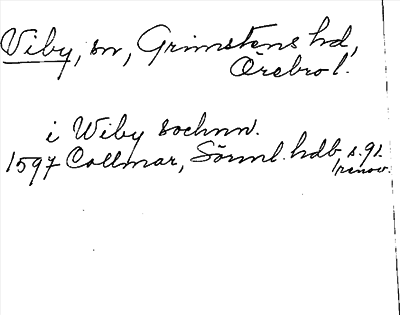 Viby, sn, Grimstens hd,
Örebro l.
i Wiby sochnn.
1597 Collmar, Sörml. hdb s. 91.
/renov.